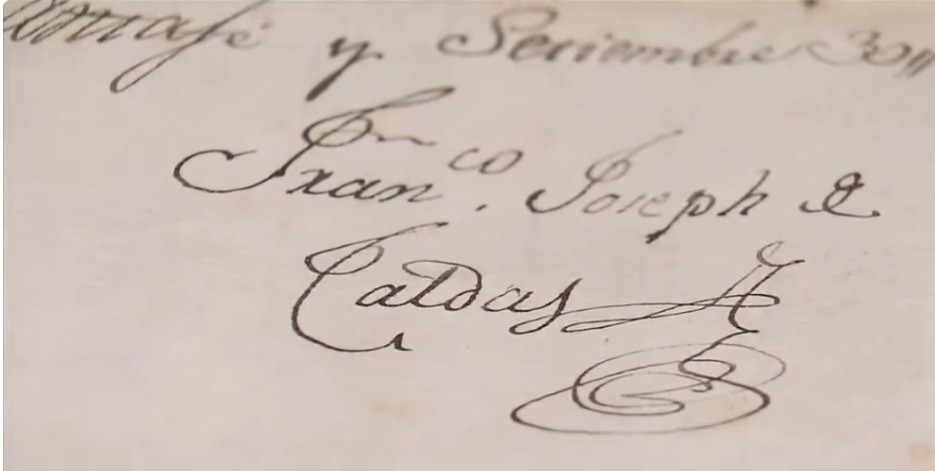 y Setiembre 30,,
Fran.co Joseph de
Caldas